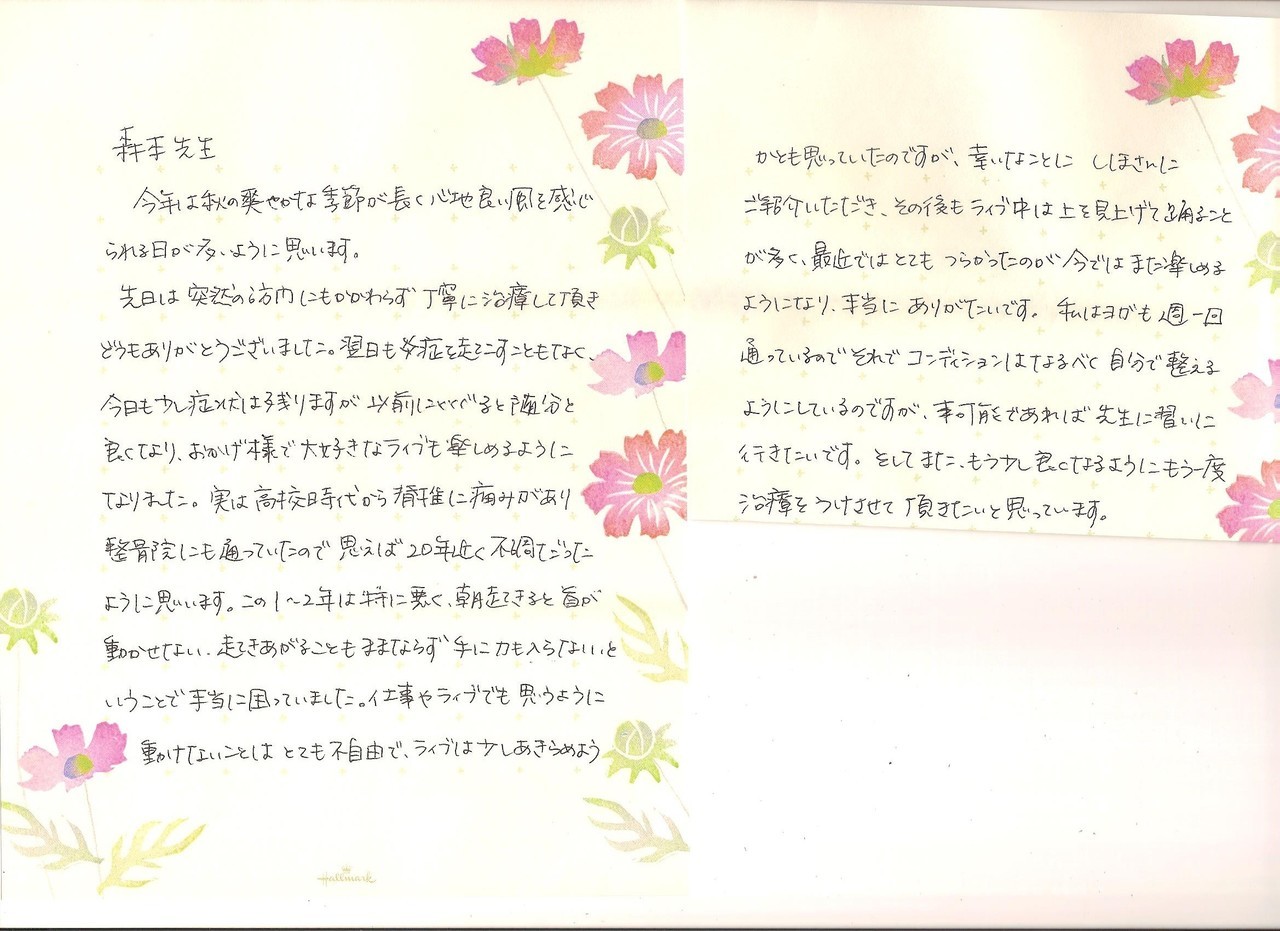 森本先生
今年は秋の爽やかな季節が長く心地良い風を感じ
られる日が多いように思います。
先日は突然の訪問にもかかわらず丁寧に治療して頂き
どうもありがとうございました。翌日も炎症を起こすこともなく、
今日も少し症状は残りますが以前にくらべると随分と
良くなり、おかげ様で大好きなライブも楽しめるように
なりました。実は高校時代から脊椎に痛みがあり
整骨院にも通っていたので思えば20年近く不調だった
ように思います。この1〜2年は特に悪く、朝起きると首が
動かせない、起きあがることもままならず手に力も入らないと
いうことで本当に困っていました。仕事やライブでも思うように
動けないことはとても不自由で、ライブは少しあきらめよう
Hallmark
かとも思っていたのですが、幸いなことに しほさんに
ご紹介いただき、その後もライブ中は上を見上げて踊ること
が多く、最近ではとてもつらかったのが今ではまた楽しめる
ようになり、本当にありがたいです。私はヨガも週一回
通っているのでそれでコンディションはなるべく自分で整える
ようにしているのですが、可能であれば先生に習いに
行きたいです。そしてまた、もう少し良くなるようにもう一度
治療をうけさせて頂きたいと思っています。